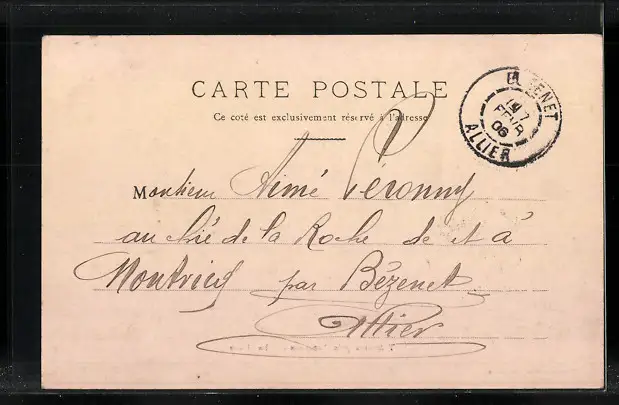 CARTE POSTALE
Ce coté est exclusivement réservé à l'adresse
BÉZENET
FEVR
06
ALLIER
Monsieur Aimé Péronny
au de la Roche de et à
par Bézenet
Allier